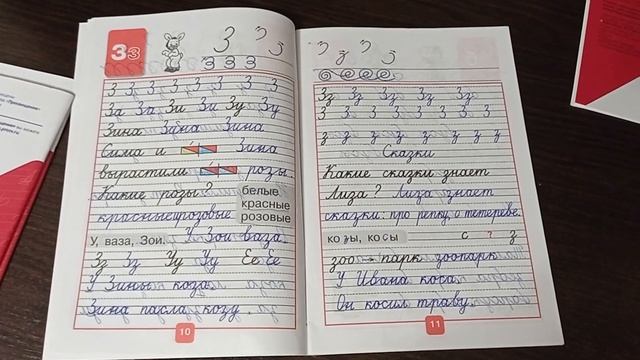 Зз
З з з
З З З
З З З З З З З З З З З
За За Зи Зи Зу Зу
Зина Зина Зина
Сима и Зина
вырастили розы.
Какие розы? белые
красные
розовые
красные розовые
У, ваза, Зои. У Зои ваза.
Зз Зз Уу Уу Ее Ее
У Зины коза.
Зина пасла козу.
10
З з З з
Зз Зз Зз Зз Зз
З З З З З З З З
з з з з з з з з
Сказки
Какие сказки знает
Лиза? Лиза знает
сказки: про репку, о тетереве.
козы, косы с ? з
зоо → парк зоопарк
У Ивана коса.
Он косил траву.
11